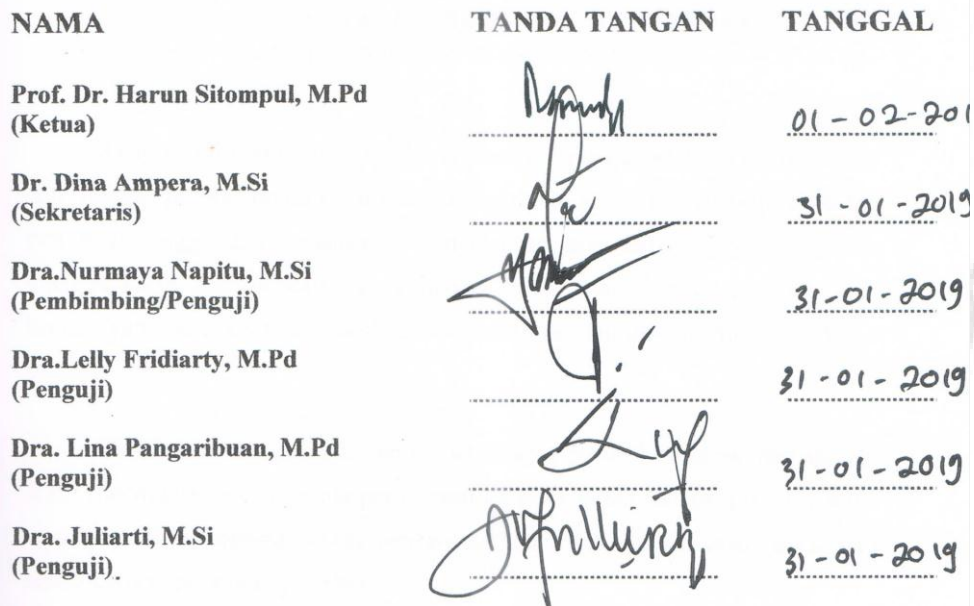 NAMA TANDA TANGAN TANGGAL
Prof. Dr. Harun Sitompul, M.Pd
(Ketua) 01-02-201
Dr. Dina Ampera, M.Si
(Sekretaris) 31-01-2019
Dra.Nurmaya Napitu, M.Si
(Pembimbing/Penguji) 31-01-2019
Dra.Lelly Fridiarty, M.Pd
(Penguji) 31-01-2019
Dra. Lina Pangaribuan, M.Pd
(Penguji) 31-01-2019
Dra. Juliarti, M.Si
(Penguji). 31-01-2019